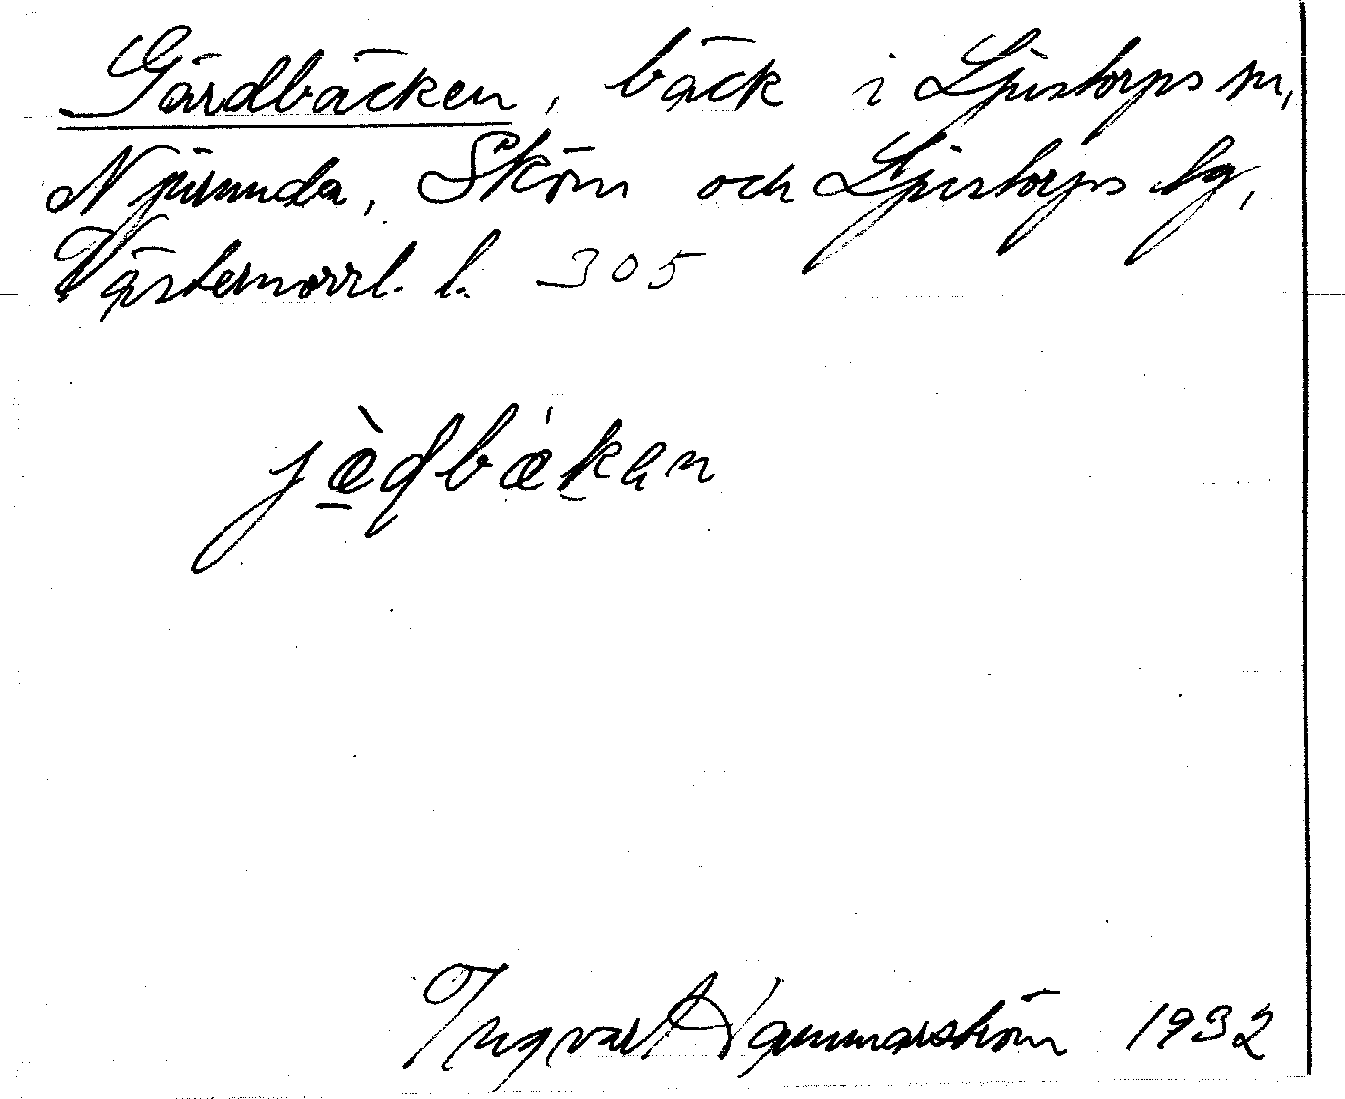 Gärdbäcken, bäck i Ljustorps sn,
Njurunda, Sköns och Ljustorps tg,
Västernorrl. l. 305
jæ̀dbækan
Ingvar Hammarström 1932